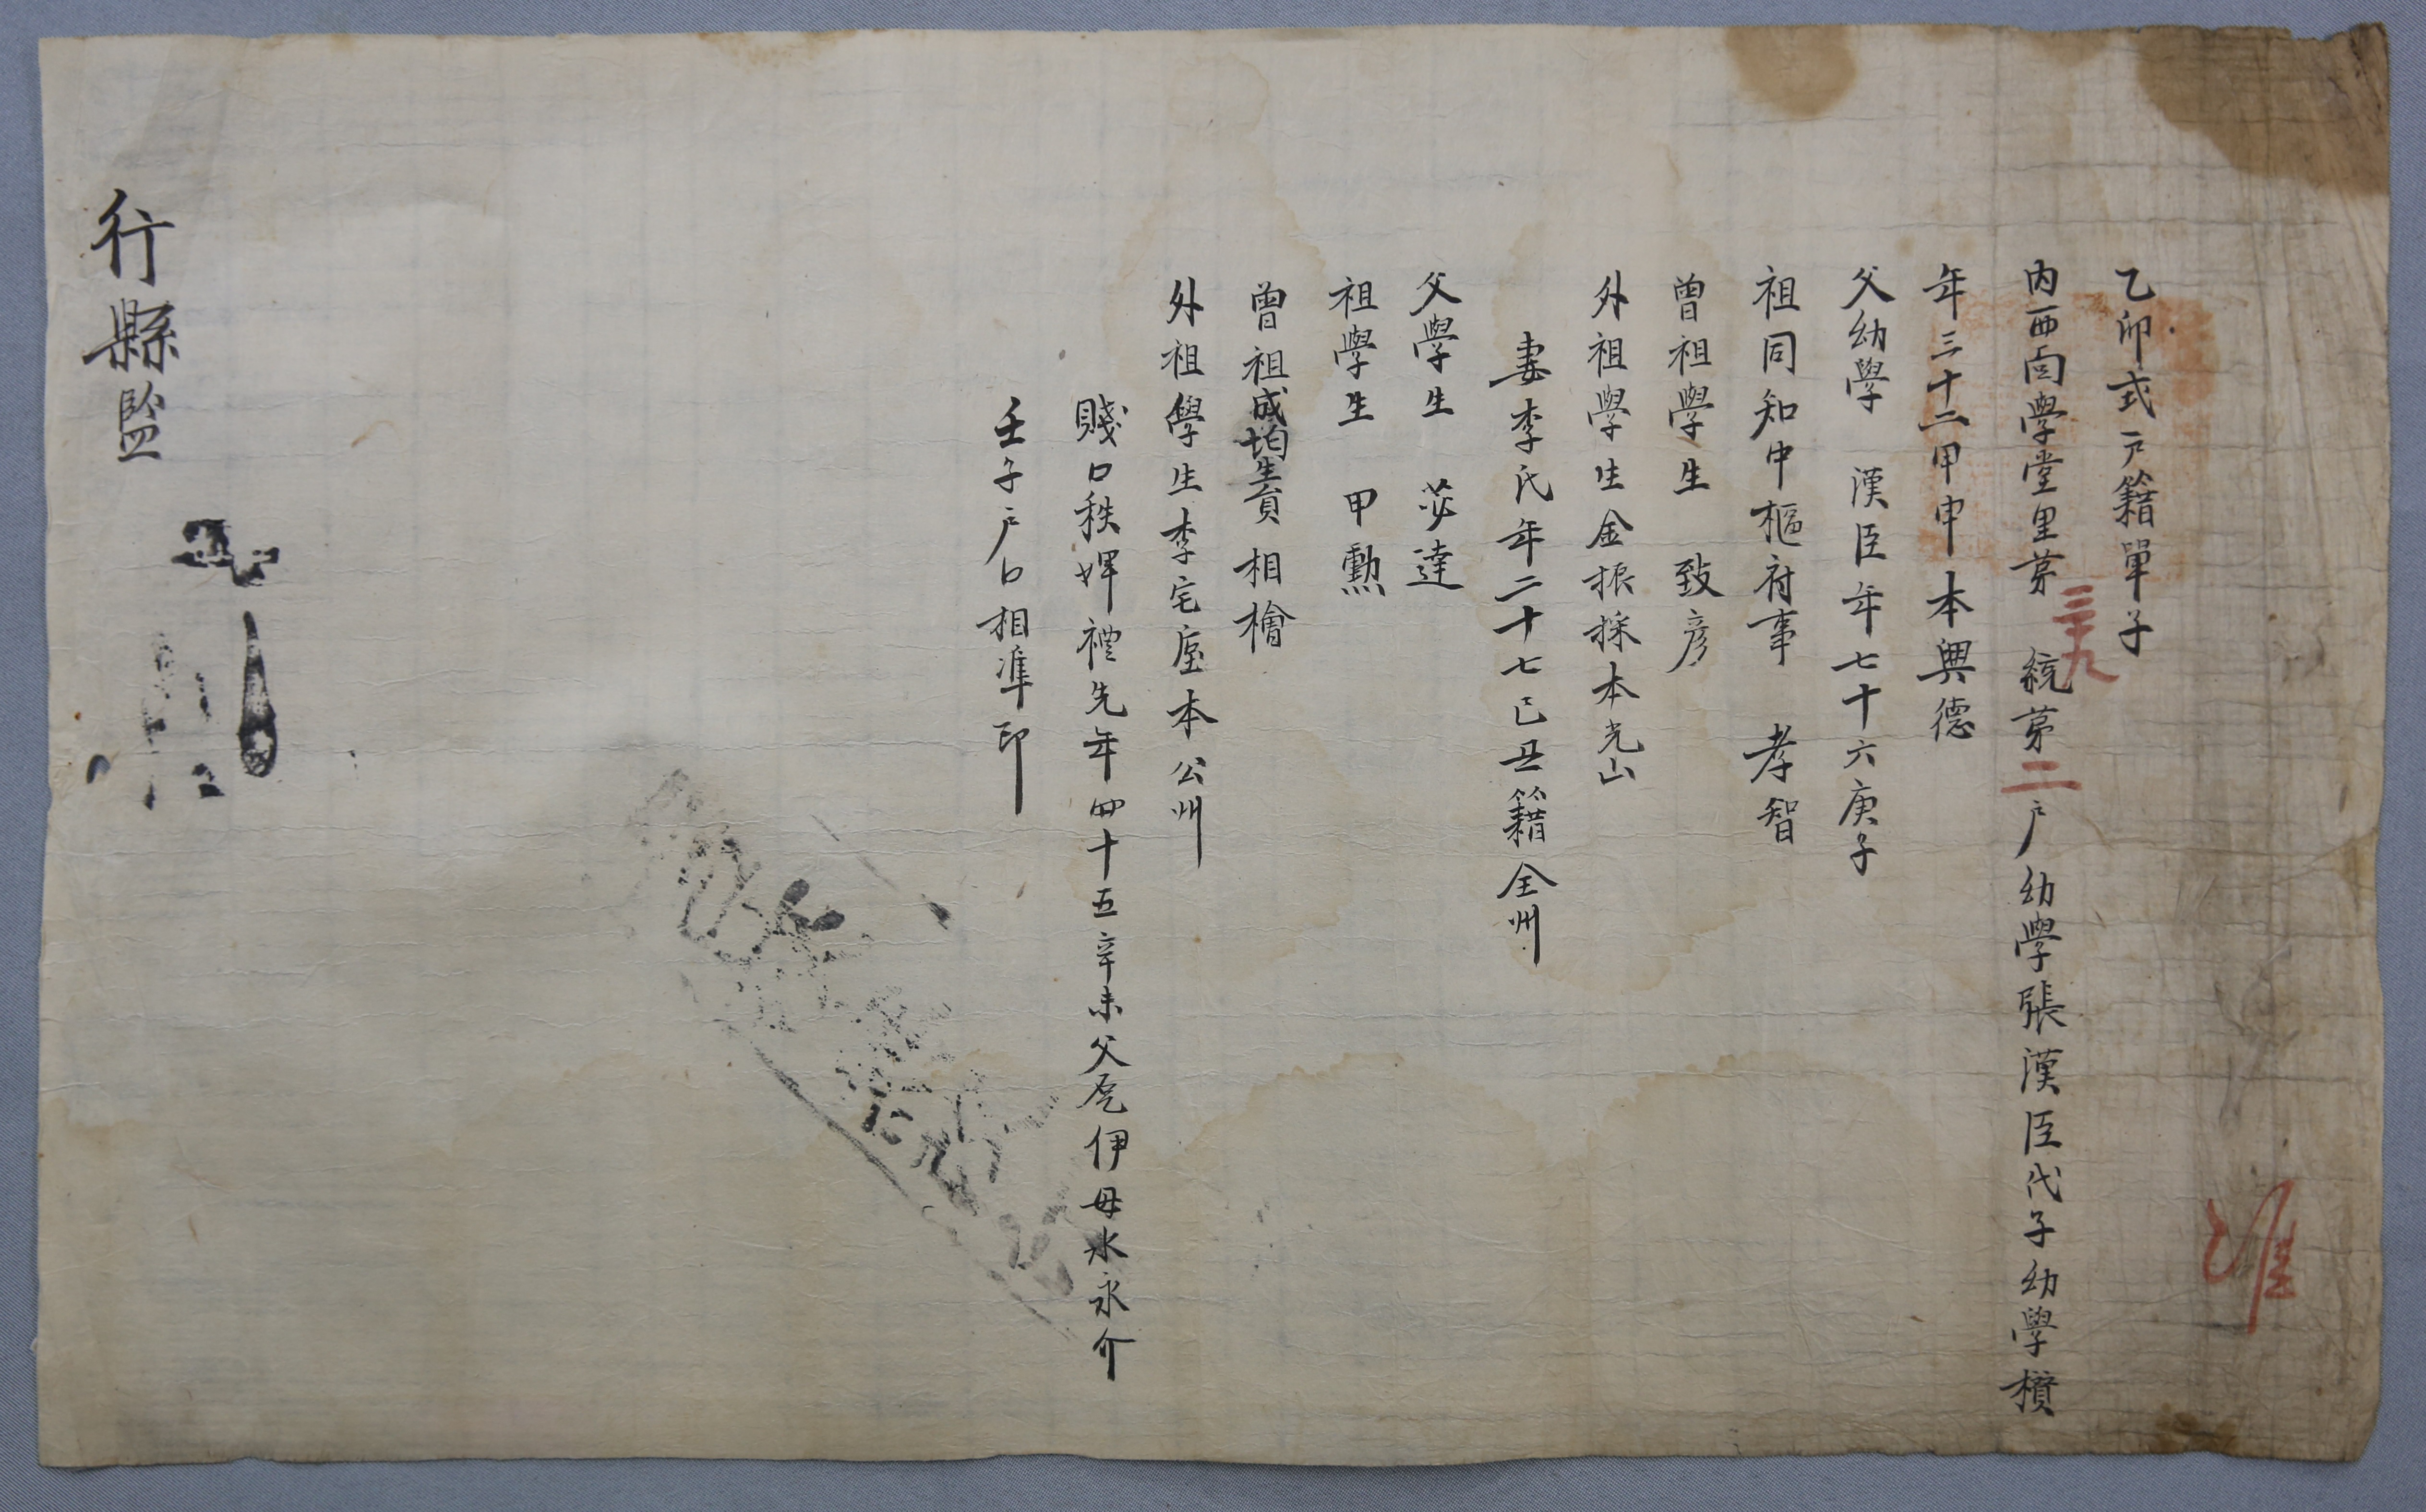 乙卯式戶籍單子
內西面學堂里苐三十九統苐二戶幼學張漢臣代子幼學櫕
年三十二甲申本興德
父幼學 漢臣年七十六庚子
祖同知中樞府事 孝智
曾祖學生 致彦
外祖學生金振採本光山
妻李氏年二十七己丑籍全州
父學生 苾達
祖學生 甲勳
曾祖成均生員 相檜
外祖學生李宅垕本公州
賤口秩婢禮先年四十五辛未父厖伊母水永介
壬子戶口相凖印
行縣監
準